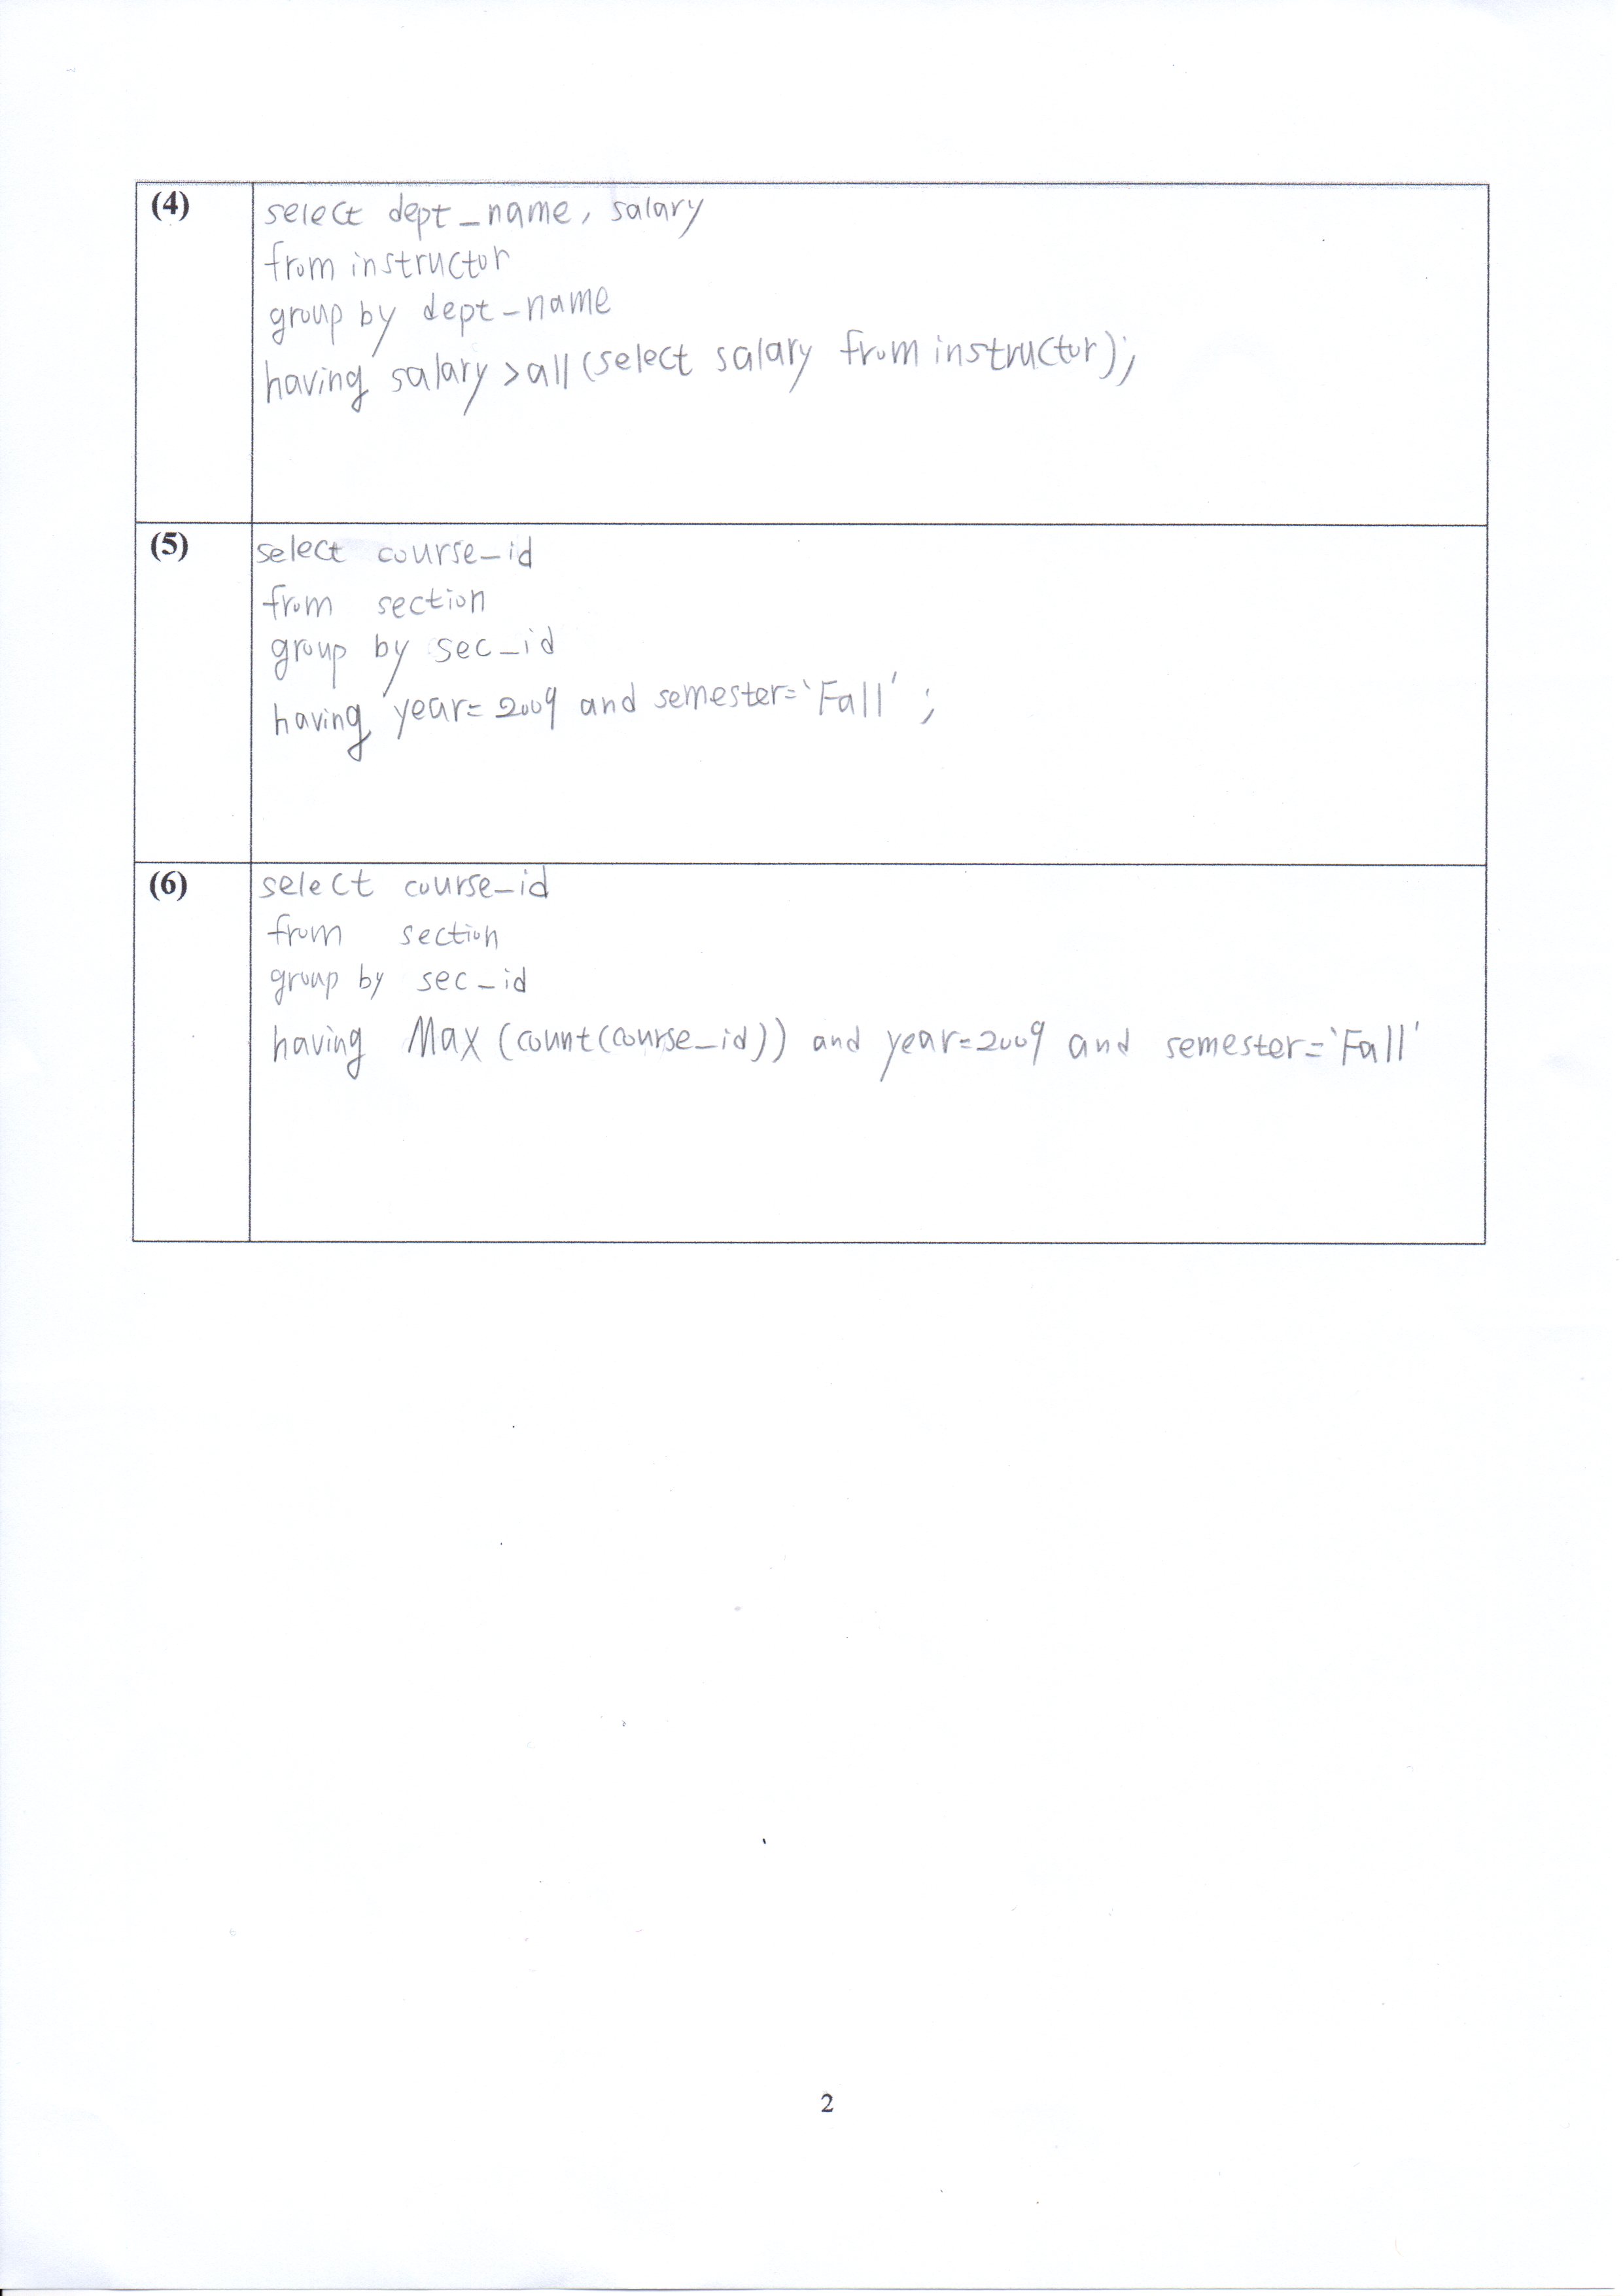 (4) select dept_name, salary
from instructor
group by dept_name
having salary >all (select salary from instructor);
(5) select course_id
from section
group by sec_id
having year=2009 and semester='Fall' ;
(6) select course_id
from section
group by sec_id
having Max (count(course_id)) and year=2009 and semester='Fall'
2